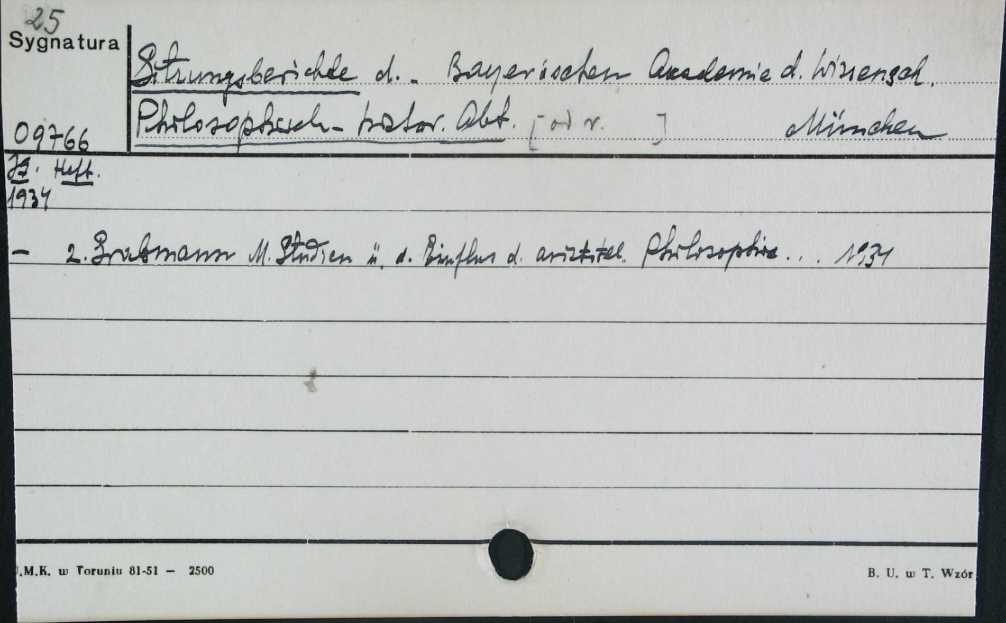 25
Sygnatura
Sitzungsberichte d. - Bayerischen Akademie d. Wissensch.
Philosophisch-histor. Abt. [od r.      ] München
09766
Heft.
1934
- 2. Grabmann M. Studien ü. d. Einfluss d. aristotel. Philosophie... 1934
U.M.K. w Toruniu 81-51 — 2500
B. U. w T. Wzór